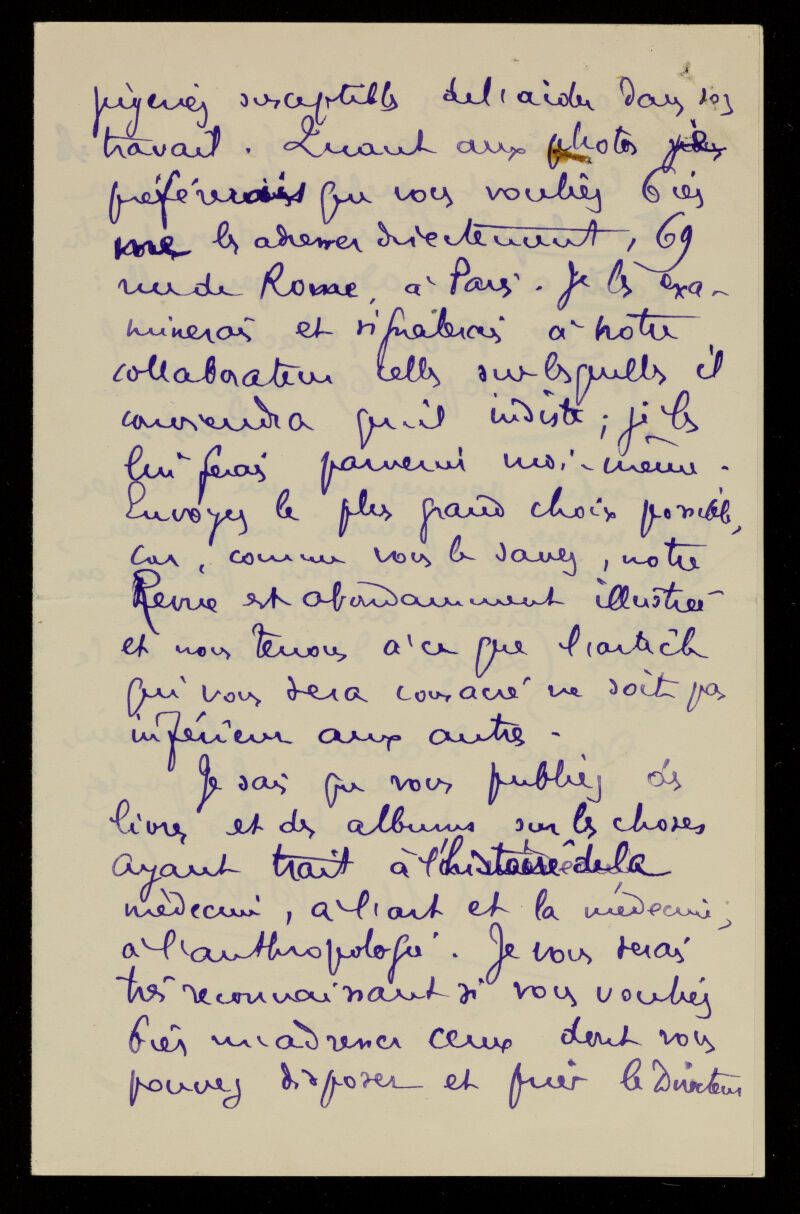 susceptibles de l'aider dans ses
travail. Quant aux photos je
préférerais que vous vouliez bien
me les adresser directement, 69
rue de Rome, à Paris. Je les exa-
minerais et signalerais à notre
collaborateur celles sur lesquelles il
conviendra qu'il insiste ; je les
lui ferai parvenir moi-même.
Envoyez le plus grand choix possible,
car, comme vous le savez, notre
Revue est abondamment illustrée
et nous tenons à ce que l'article
qui vous sera consacré ne soit pas
inférieur aux autres.
Je sais que vous publiez des
livres et des albums sur les choses
ayant trait à l'histoire de la
médecine, à l'art et la médecine,
à l'anthropologie. Je vous serais
très reconnaissant si vous vouliez
bien m'adresser ceux dont vous
pouvez disposer et prier le Directeur